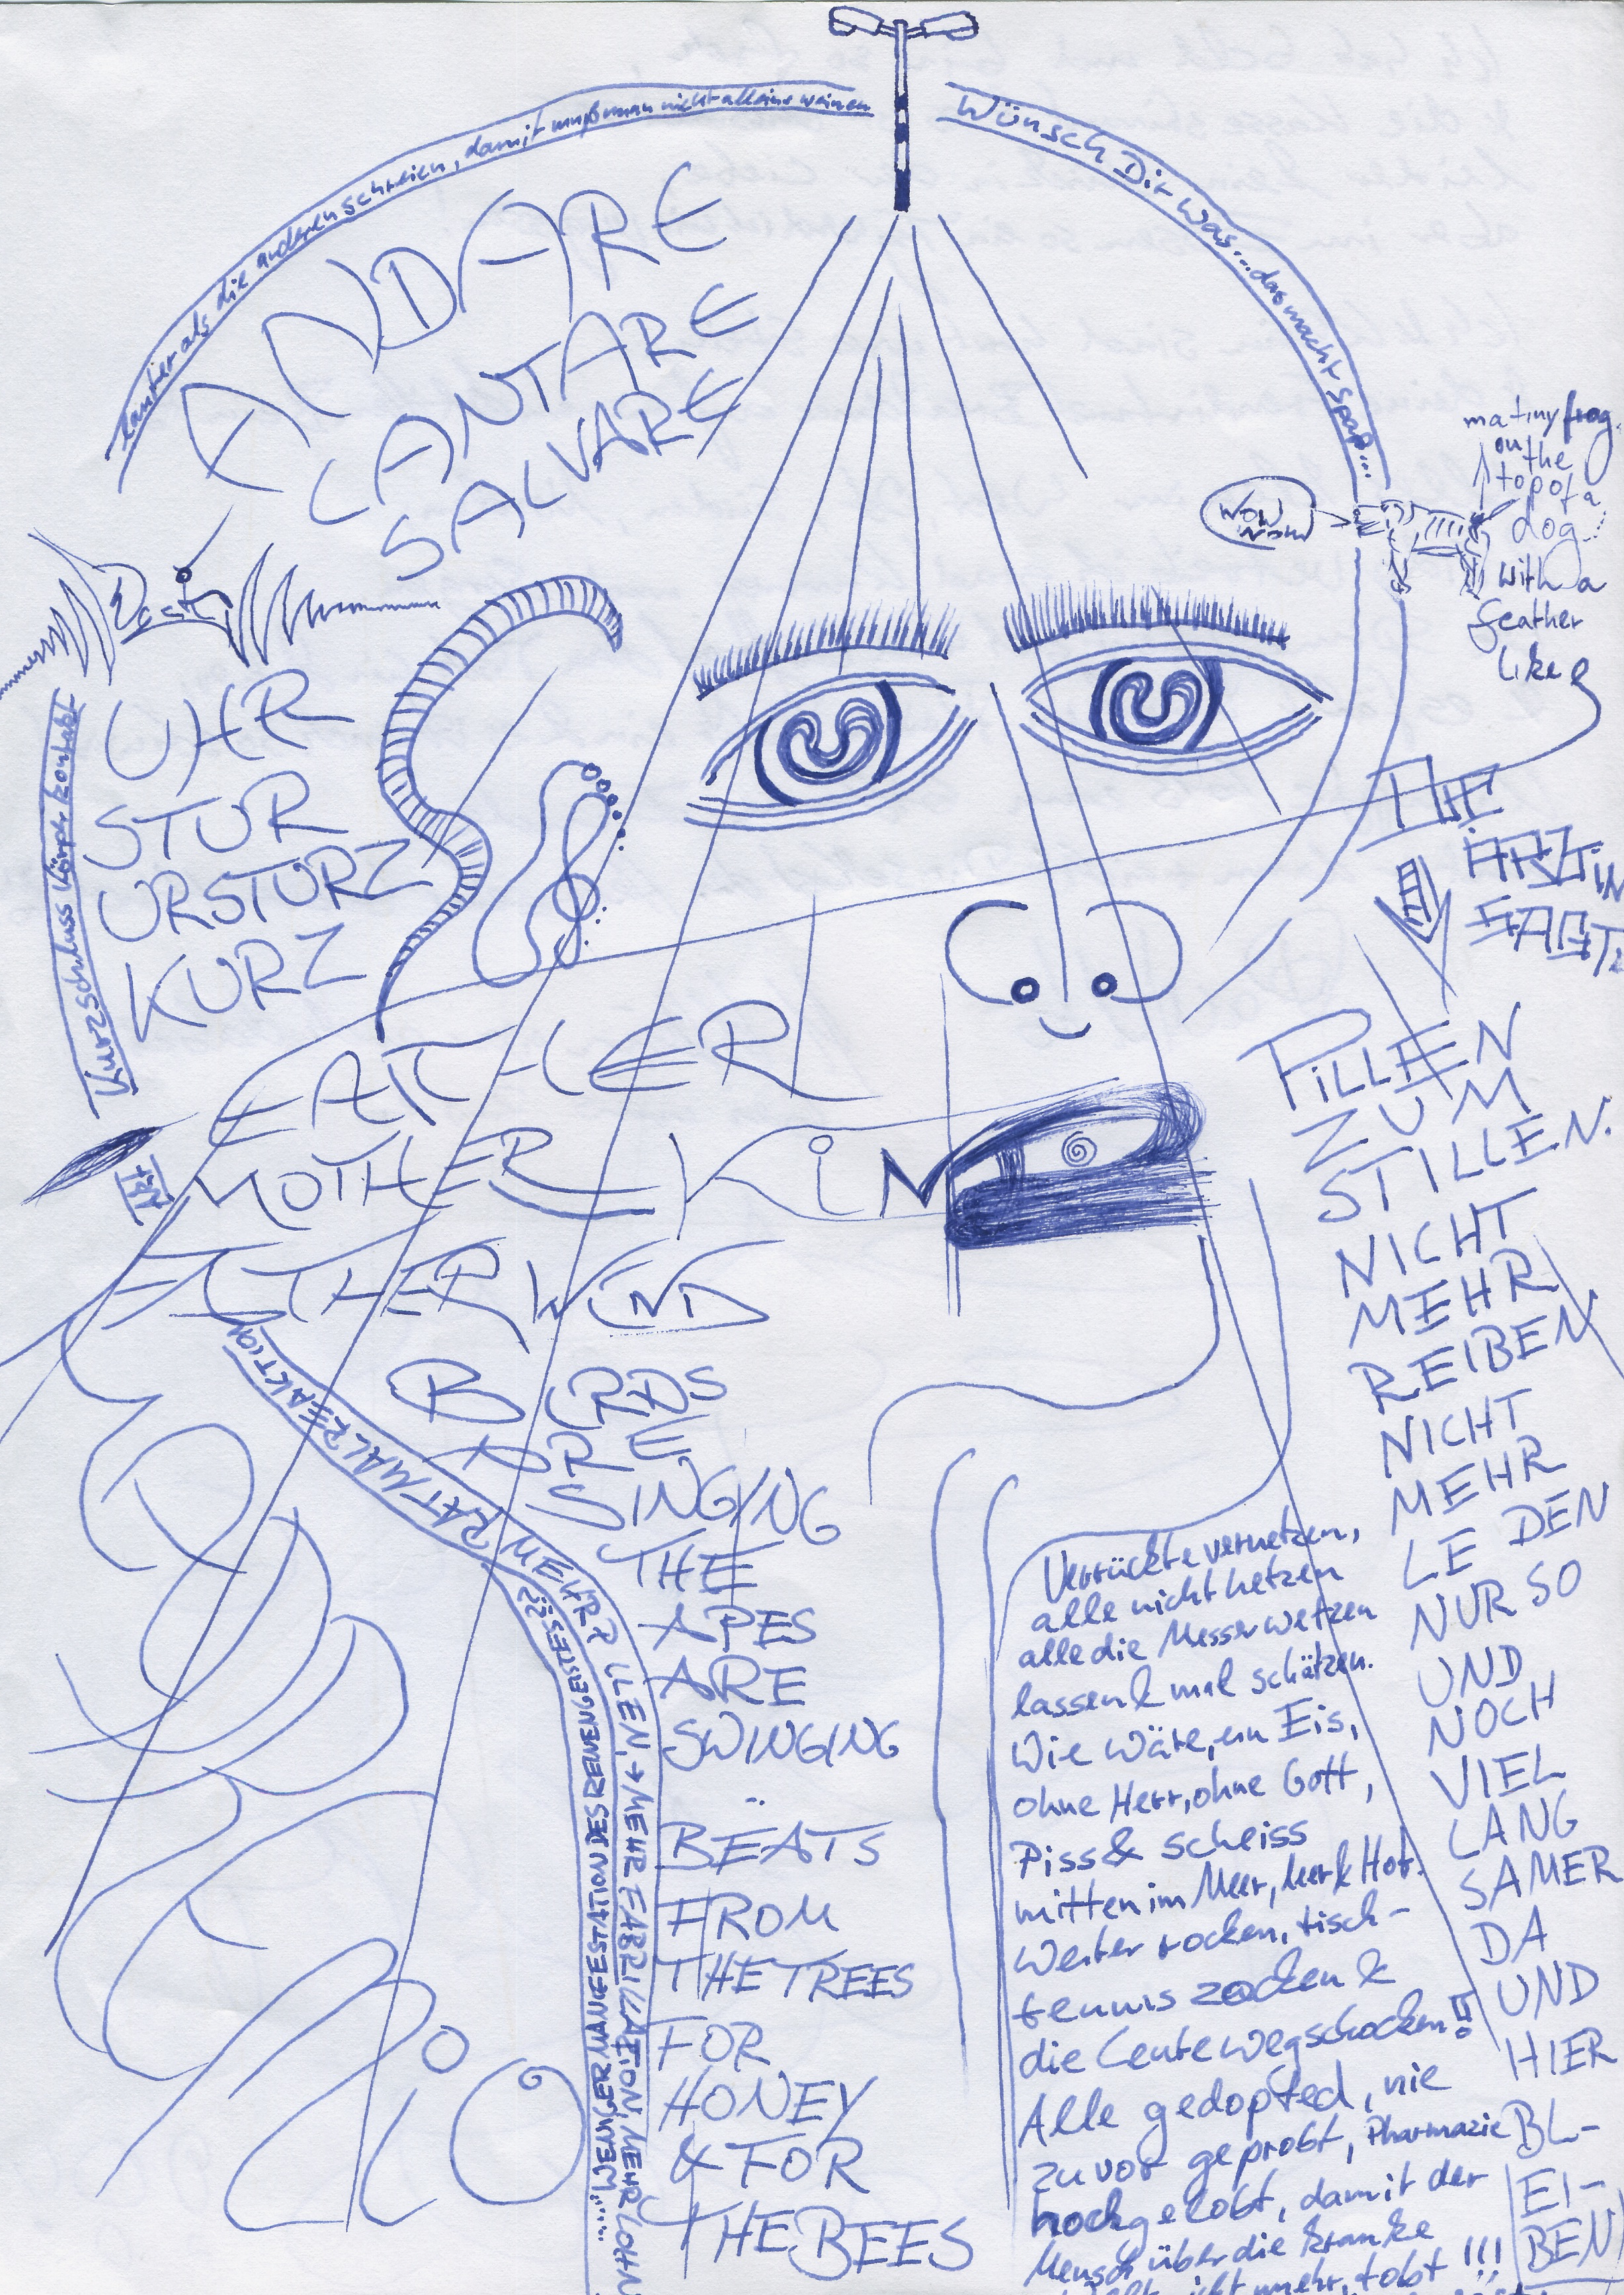 lauter als die anderen schreien, damit muß man nicht alleine weinen
Wünsch Dir was... das macht Spaß...
ANDARE
CANTARE
SALVARE
WOW
WOW
tiny frog
on the
top of a
dog
with a
feather
like
UHR
STUR
URSTURZ
KURZ
Kurzschluss Körperkontakt
THE
ÄRZTIN
SAGT:
FATHER
MOTHER
KIN
WIND
PILLEN
ZUM
STILLEN.
NICHT
MEHR
REIBEN
NICHT
MEHR
LE DEN
NUR SO
UND
NOCH
VIEL
LANG
SAMER
DA
UND
HIER
BL-
EI-
BEN
BIRDS
ARE
SINGING
THE
APES
ARE
SWINGING
BEATS
FROM
THE TREES
FOR
HONEY
& FOR
THE BEES
MEHR PILLEN, → MEHR FABRIKATION, MEHR LOHN
......WENIGER MANIFESTATION DES REINEN GEISTES
Verrückte vernetzen,
alle nicht hetzen
alle die Messer wetzen
lassen & mal schätzen.
Wie wäre, ein Eis,
ohne Herr, ohne Gott,
Piss & scheiss
mitten im Meer, leer & Hot.
Weiter rocken, tisch-
tennis zocken &
die Leute wegschocken!!
Alle gedopted, nie
zuvor geprobt, Pharmazie
hochgelobt, damit der
Mensch über die kranke
nicht mehr, tobt!!!